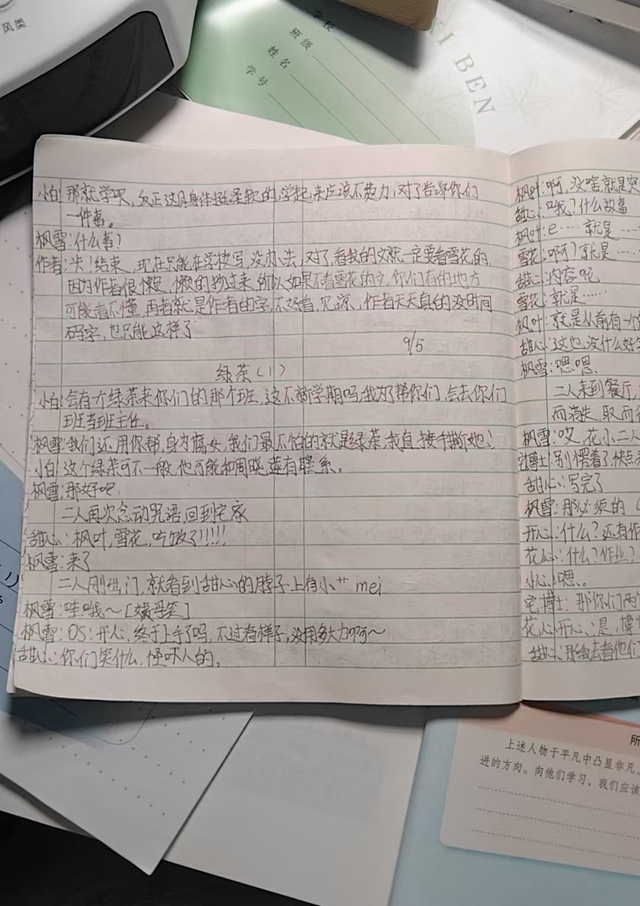 风类
学校
班级
姓名
学号
XI BEN
小白:那就学呗,反正这具身体挺柔软的,学起来应该不费力,对了告诉你们
一件事。
枫雪:什么事?
作者:卡!结束,现在只能在学校写,没办法,对了看我的文就一定要看雪花的,
因为作者很懒,懒的物过来,所以如果不看雪花的文,你们有的地方
可能看不懂,再者就是作者的字不好看,见谅,作者天天真的没时间
码字,也只能这样了
9/5
绿茶(1)
小白:会有个绿茶来你们的那个班,这不新学期吗,我为了帮你们,会去你们
班当班主任。
枫雪:我们还用你帮,身为腐女,我们最不怕的就是绿茶,我直接手撕她
小白:这个绿茶可不一般,他可能和周晓蓝有联系。
枫雪:那好吧
二人再次念动咒语,回到宅家
甜心:枫叶,雪花,吃饭了!!!!!
枫雪:来了
二人刚出门,就看到甜心的脖子上有小艹mei
枫雪:哇哦~[姨母笑]
枫雪:OS:开心,终于上手了吗,不过看样子,没用多大力啊~
甜心:你们笑什么,怪吓人的。
枫叶:啊,没啥就是突
甜心:哦?什么故事
枫叶:e……就是……
雪花:啊?就是……
甜心:内容呢
雪花:就是……
枫叶:就是从前有一个
甜心:这也没什么好笑
枫雪:嗯嗯
二人来到餐厅,
而消失,取而
枫雪:哎,花小二人
宅博士:别愣着了,快点
甜心:写完了
枫雪:那必须的(
开心:什么?还有作
花心:什么?作业?
小心:嗯。。
宅博士:那你们两个
花心开心:是,博
甜心:那我去看他们
所
上述人物于平凡中凸显非凡,
进的方向。向他们学习,我们应该